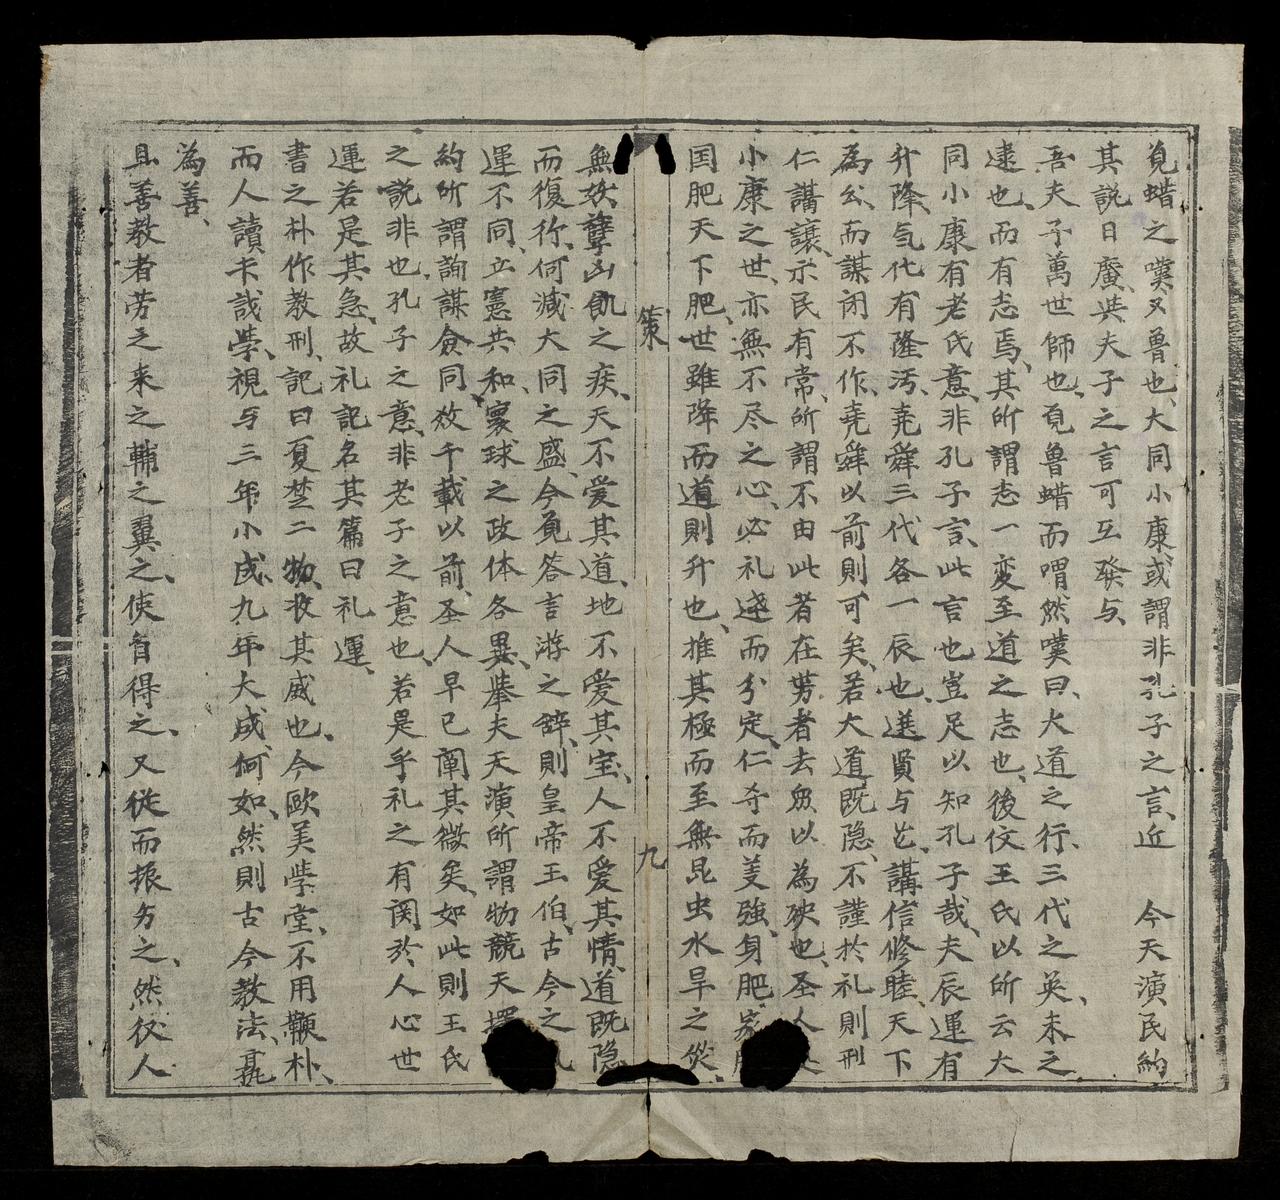 覓蜡之嘆又魯也、大同小康或謂非孔子之言、近 今天演民約
其說日廣、與夫子之言可互發与、
吾夫子萬世師也、覓魯蜡而喟然嘆曰、大道之行、三代之英、未之
逮也、而有志焉、其所謂志一變至道之志也、後伩王氏以所云大
同小康有老氏意、非孔子言、此言也豈足以知孔子哉、夫辰運有
升降、気化有隆污、堯舜三代各一辰也、選賢与能、講信修睦、天下
為公、而謀闭不作、堯舜以前則可矣、若大道既隐、不謹於礼則刑
仁講讓、示民有常、所謂不由此者在势者去、衆以為殃也、圣人
小康之世、亦無不尽之心、必礼達而分定、仁夺而羑強、身肥、家肥
国肥天下肥、世雖降而道則升也、推其極而至無昆虫水旱之災、
策 九
無妖孽凶飢之疾、天不爱其道、地不爱其宝、人不爱其情、道既隐
而復行、何減大同之盛、今覓答言游之辞、則皇帝王伯、古今之
運不同、立憲共和、寰球之政体各異、挙夫天演所謂物競天擇
約所謂詢謀僉同、效千載以前、圣人早已闡其微矣、如此則王氏
之説非也、孔子之意、非老子之意也、若是乎礼之有関於人心世
運若是其急、故礼記名其篇曰礼運、
書之朴作教刑、記曰夏楚二物、收其威也、今歐美學堂、不用鞭朴、
而人讀卡哉學、視与三年小成、九年大成何如、然則古今教法、孰
為善、
且善教者劳之来之輔之翼之、使自得之、又從而振努之、然伩人